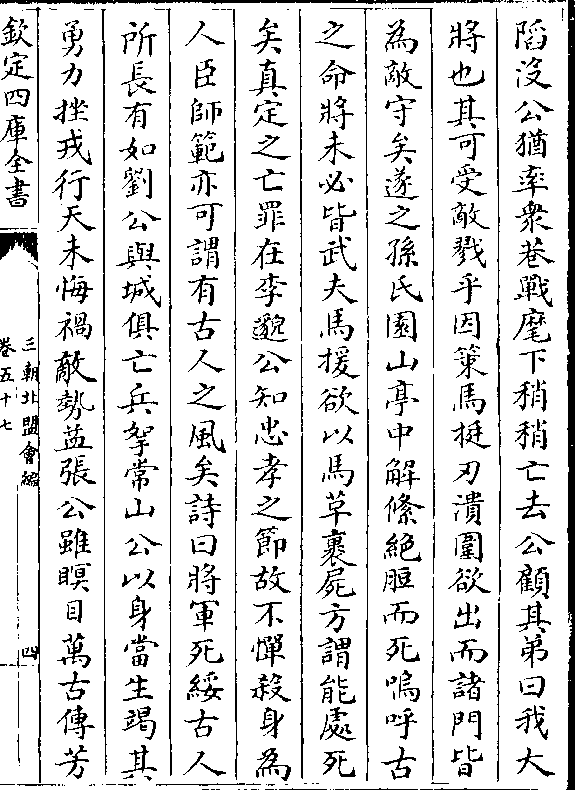 陷没公猶率衆巷戰麾下稍稍亡去公顧其弟曰我大
將也其可受敵戮乎因策馬挺刃潰圍欲出而諸門皆
為敵守矣遂之孫氏園山亭中解絛絶脰而死嗚呼古
之命將未必皆武夫馬援欲以馬草裹屍方謂能處死
矣真定之亡罪在李邈公知忠孝之節故不憚殺身為
人臣師範亦可謂有古人之風矣詩曰將軍死綏古人
所長有如劉公與城俱亡兵拏常山公以身當生竭其
勇力挫戎行天未悔禍敵勢益張公雖瞑目萬古傳芳
欽定四庫全書
三朝北盟會編
卷五十七
四